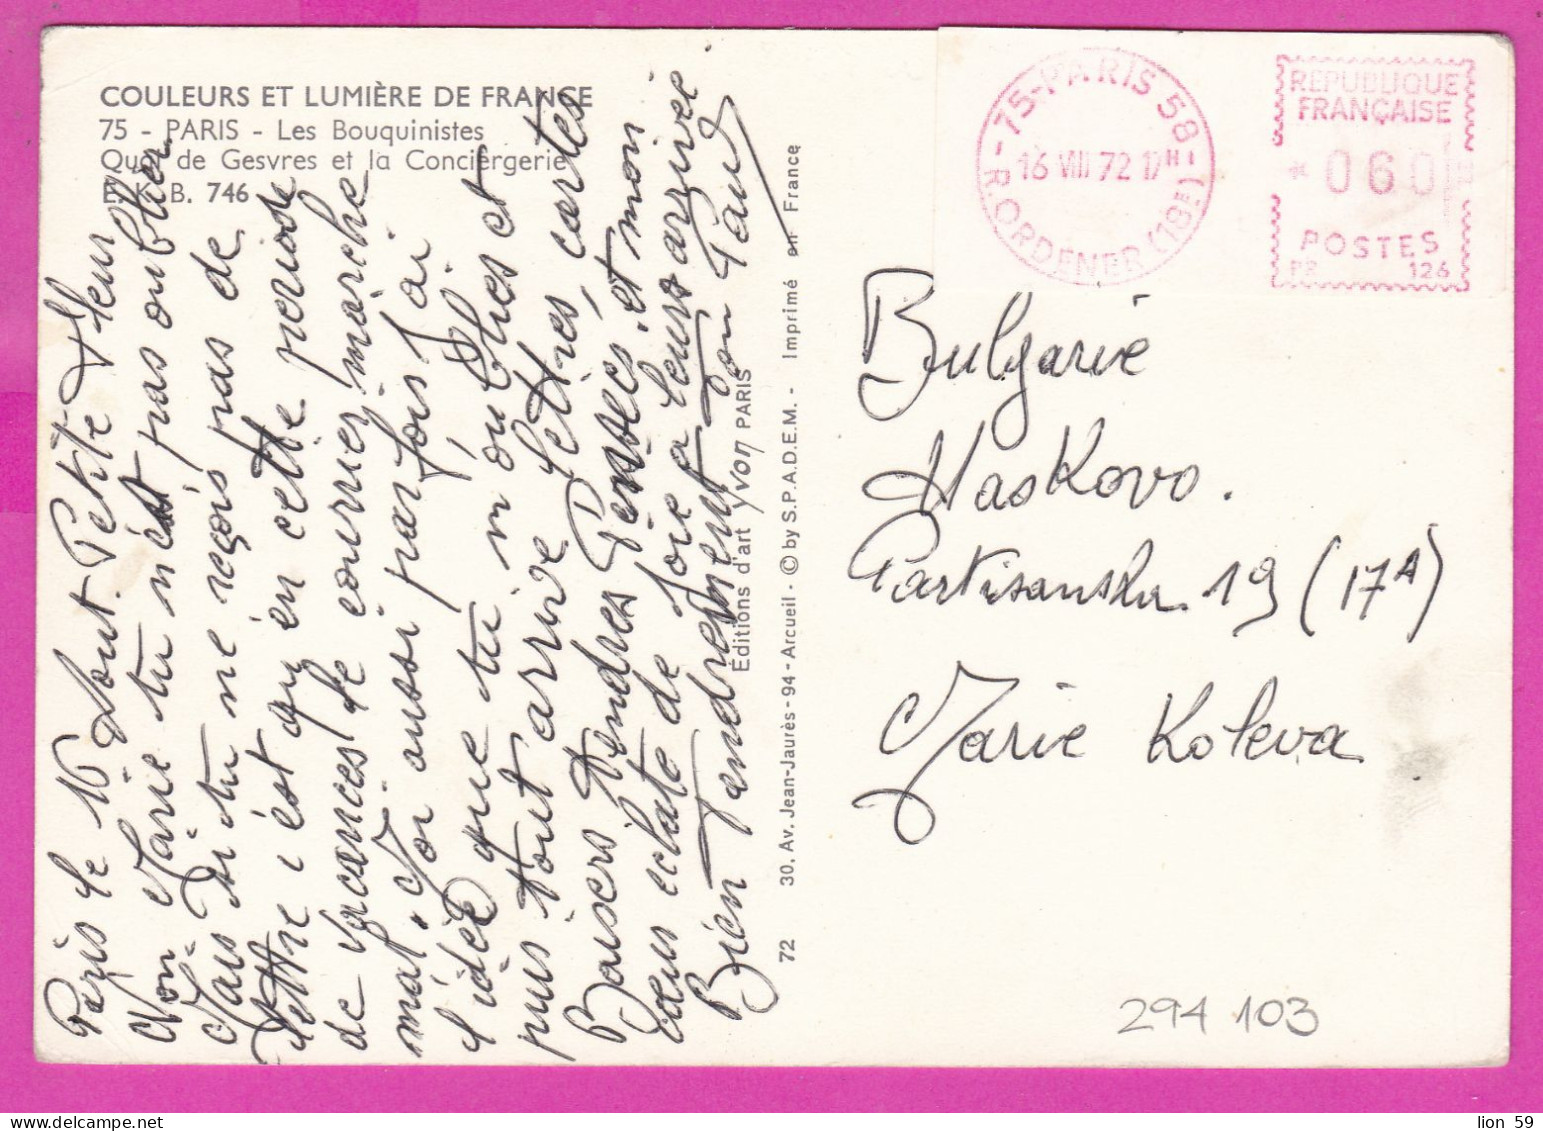 COULEURS ET LUMIÈRE DE FRANCE
75 - PARIS - Les Bouquinistes
Quai de Gesvres et la Conciergerie
E. K. B. 746
75-PARIS 58
16 VIII 72 17H
R. ORDENER (18E)
RÉPUBLIQUE
FRANÇAISE
060
POSTES
P2 126
Paris le 16 Aout. Petite fleur
Non Marie tu n'est pas oublier
Mais si tu ne reçois pas de
lettre c'est qu'en cette periode
de vacances le courrier marche
mal. Moi aussi parfois J'ai
l'idée que tu m'oublies et
puis tout arrive lettres, cartes
Baisers tendres Pensées, et mon
cœur eclate de Joie a leurs arrivée.
Bien Tendrement Ton Paul
Éditions d'art Yvon PARIS
72 30, Av. Jean-Jaurès - 94 - Arcueil - © by S.P.A.D.E.M. - Imprimé en France
Bulgarie
Haskovo.
Partisanska 19 (17A)
Marie Koleva
294 103
lion 59